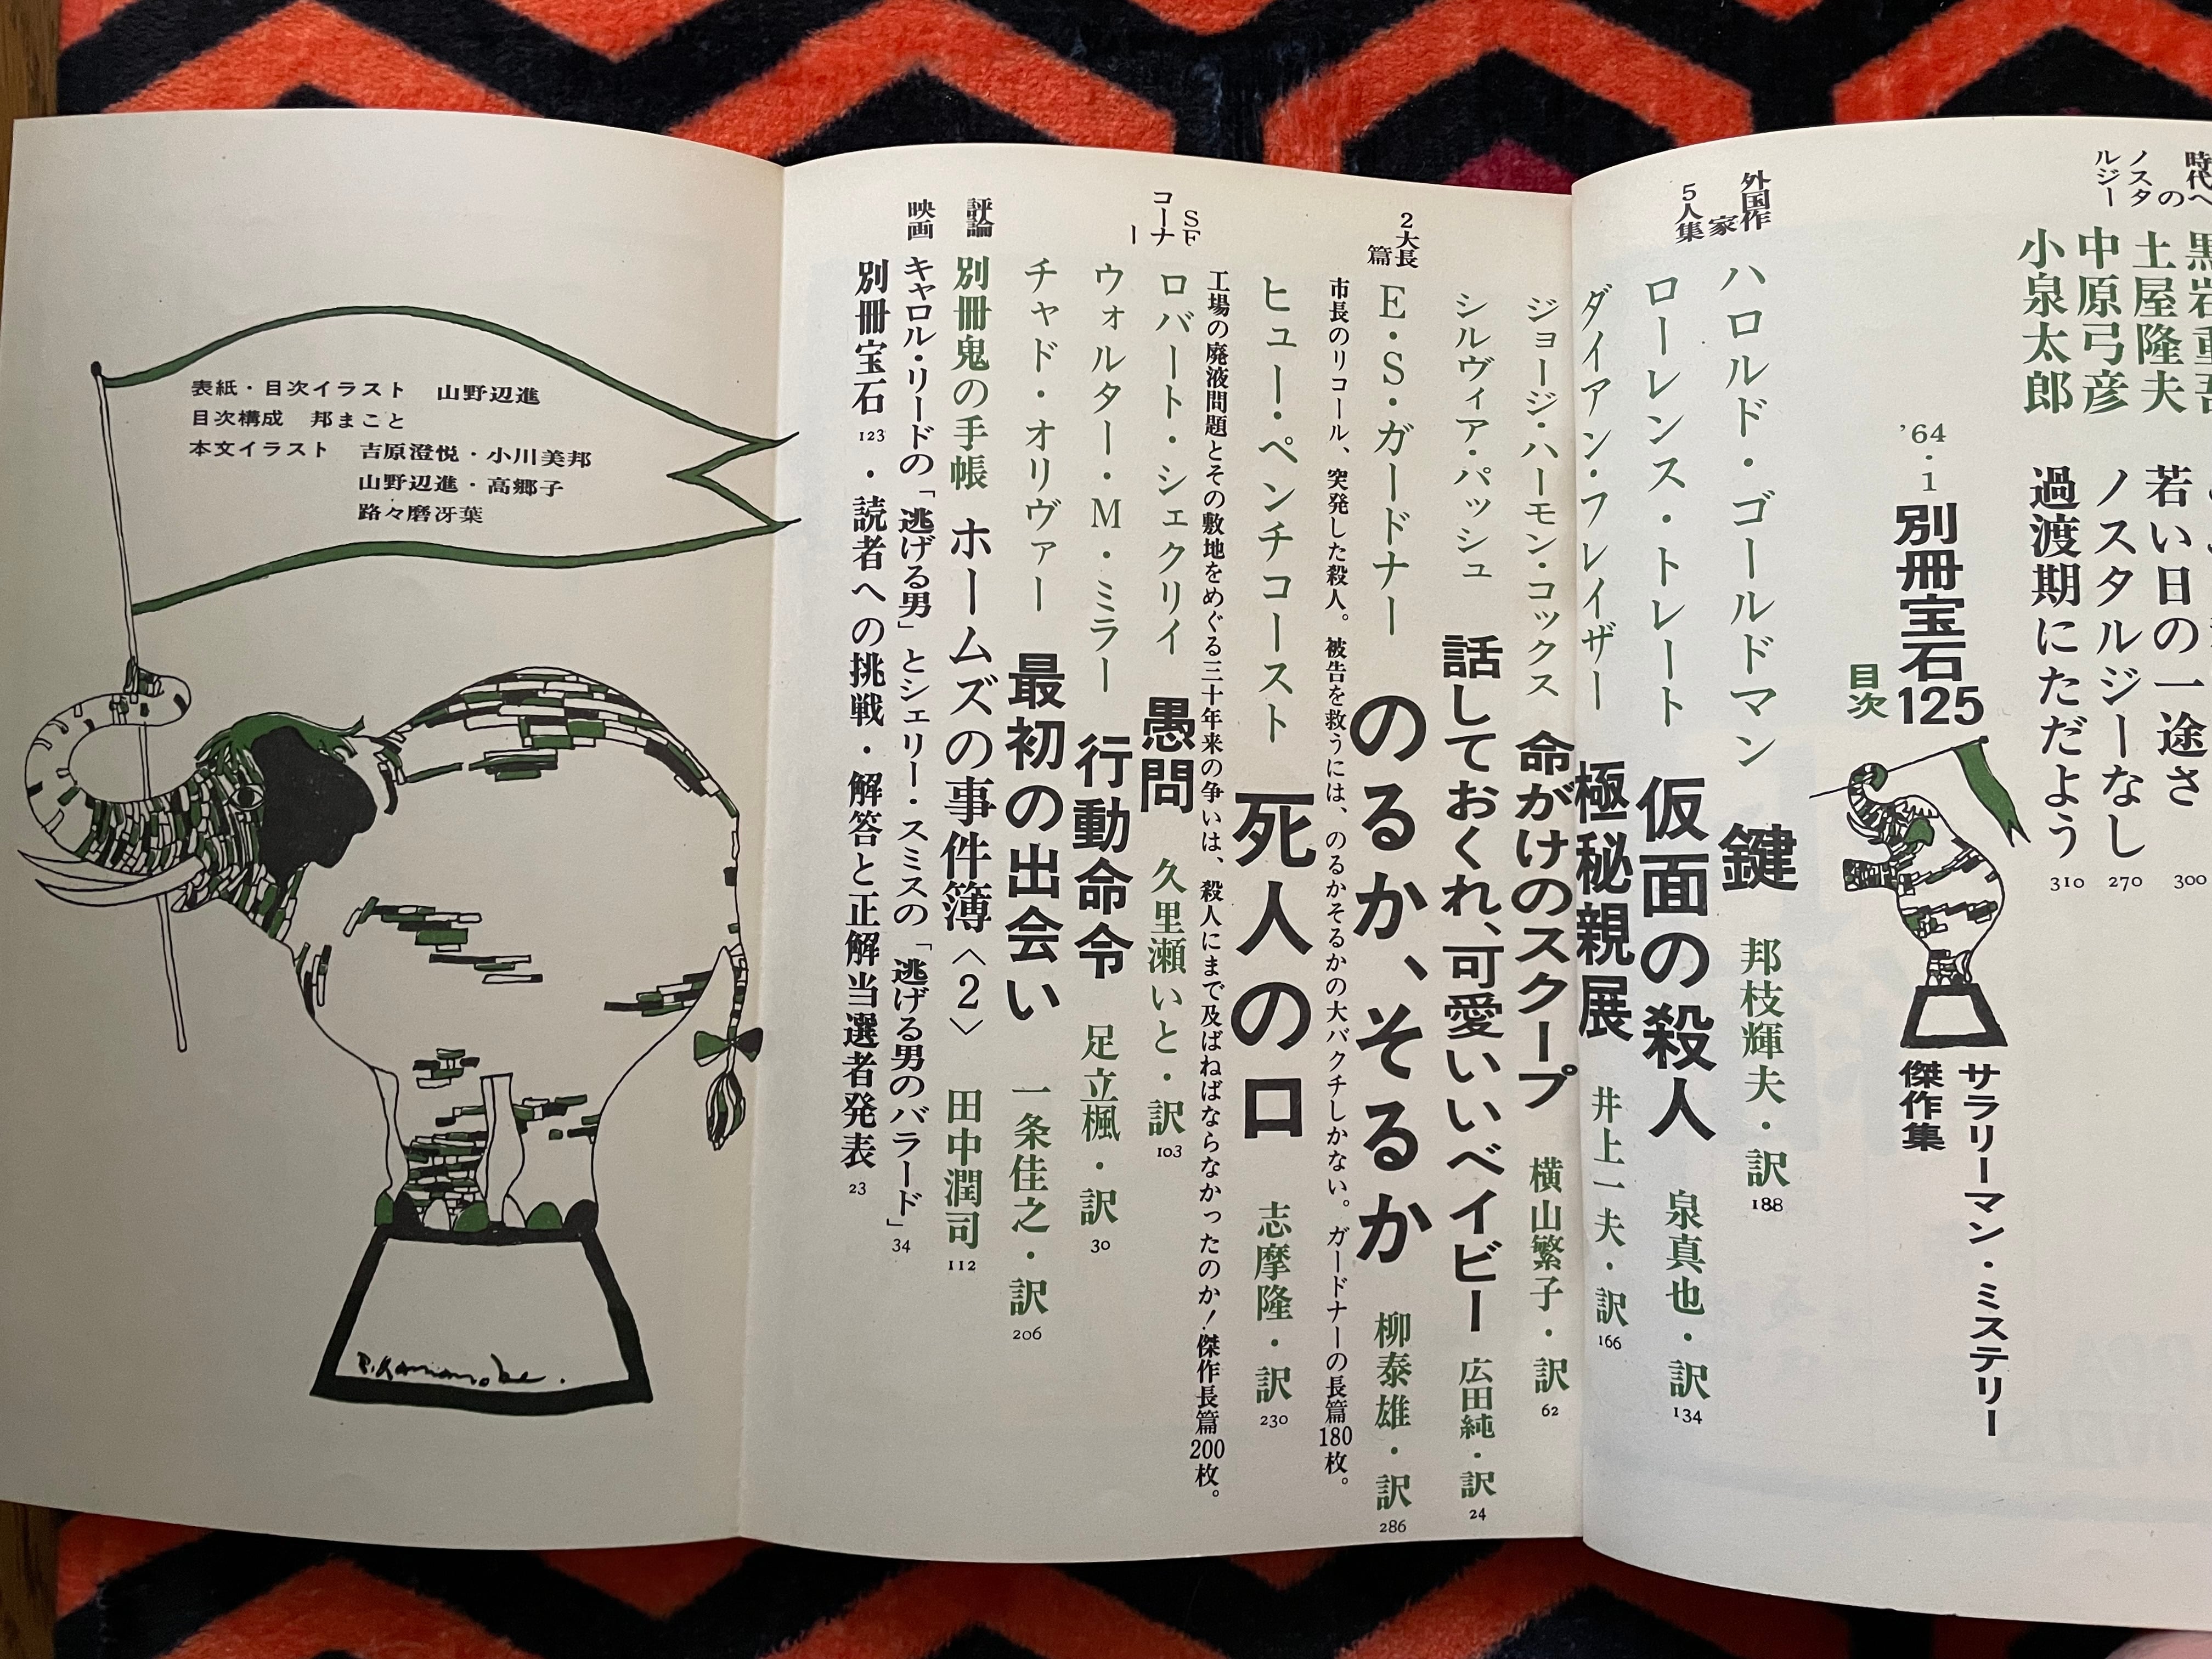 時代への
ノスタルジー
土屋隆夫 若い日の一途さ 300
中原弓彦 ノスタルジーなし 270
小泉太郎 過渡期にただよう 310
’64・1
別冊宝石125
目次
サラリーマン・ミステリー
傑作集
外国作家
5人集
ハロルド・ゴールドマン 鍵 邦枝輝夫・訳 188
ローレンス・トレート 仮面の殺人 泉真也・訳 134
ダイアン・フレイザー 極秘親展 井上一夫・訳 166
ジョージ・ハーモン・コックス 命がけのスクープ 横山繁子・訳 62
シルヴィア・パッシュ 話しておくれ、可愛いいベイビー 広田純・訳 24
2大長篇
E・S・ガードナー のるか、そるか 柳泰雄・訳 286
市長のリコール、突発した殺人。被告を救うには、のるかそるかの大バクチしかない。ガードナーの長篇180枚。
ヒュー・ペンチコースト 死人の口 志摩隆・訳 230
工場の廃液問題とその敷地をめぐる三十年来の争いは、殺人にまで及ばねばならなかったのか！傑作長篇200枚。
SFコーナー
ロバート・シェクリイ 愚問 久里瀬いと・訳 103
ウォルター・M・ミラー 行動命令 足立楓・訳 30
チャド・オリヴァー 最初の出会い 一条佳之・訳 206
評論 別冊鬼の手帳 ホームズの事件簿〈2〉 田中潤司 112
映画 キャロル・リードの「逃げる男」とシェリー・スミスの「逃げる男のバラード」 34
別冊宝石 123・読者への挑戦・解答と正解当選者発表 23
表紙・目次イラスト 山野辺進
目次構成 邦まこと
本文イラスト 吉原澄悦・小川美邦
山野辺進・高郷子
路々磨冴葉